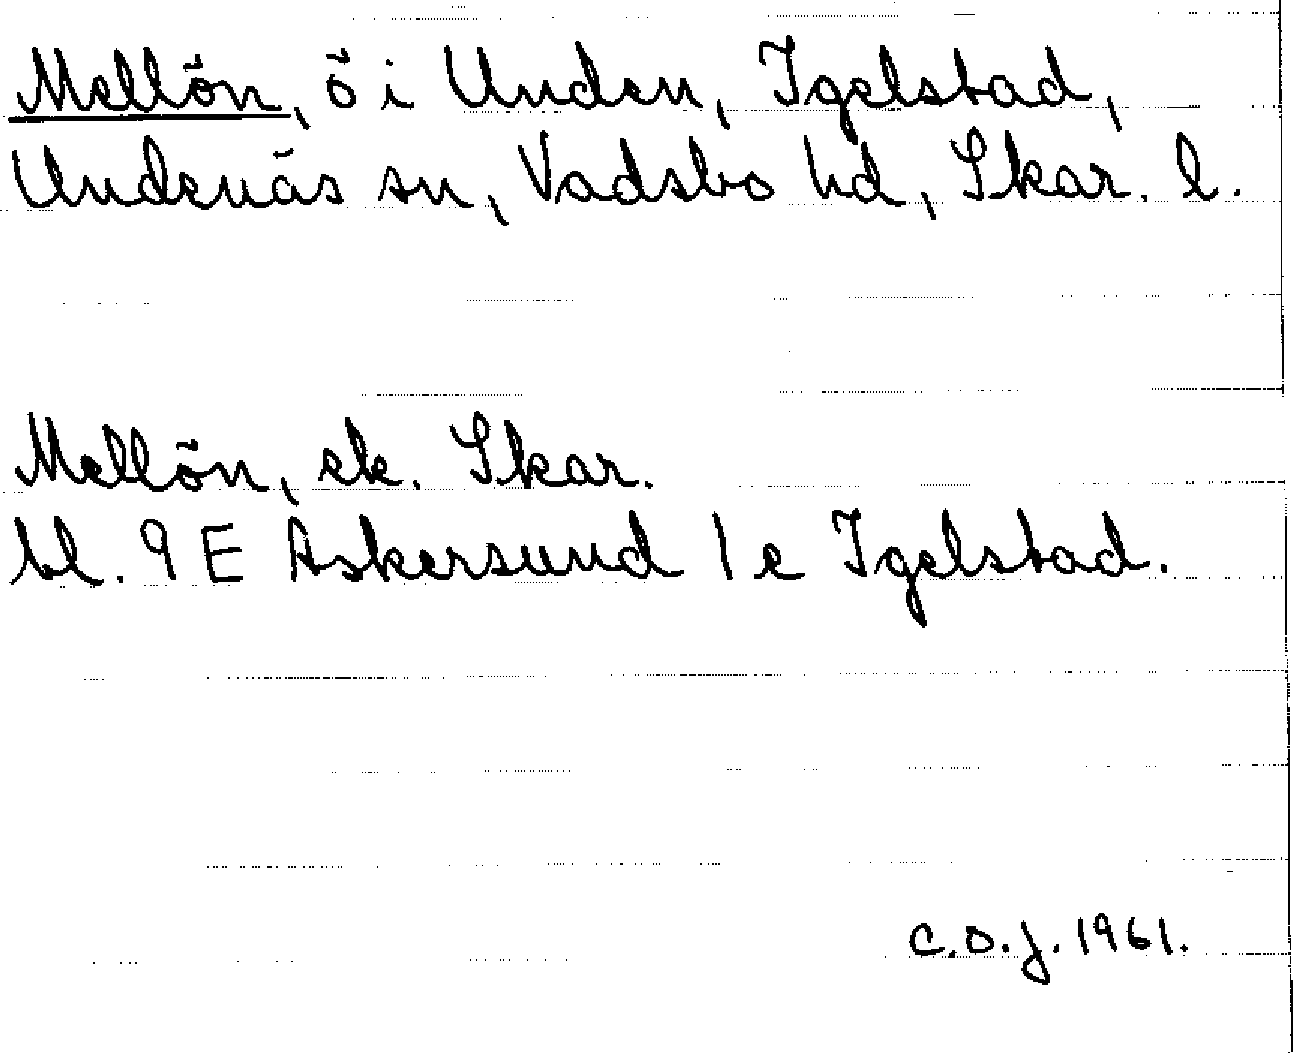 Mellön, ö i Unden, Igelstad,
Undenäs sn, Vadsbo hd, Skar. l.
Mellön, ek. Skar.
bl. 9 E Askersund 1 e Igelstad.
C.O.J. 1961.